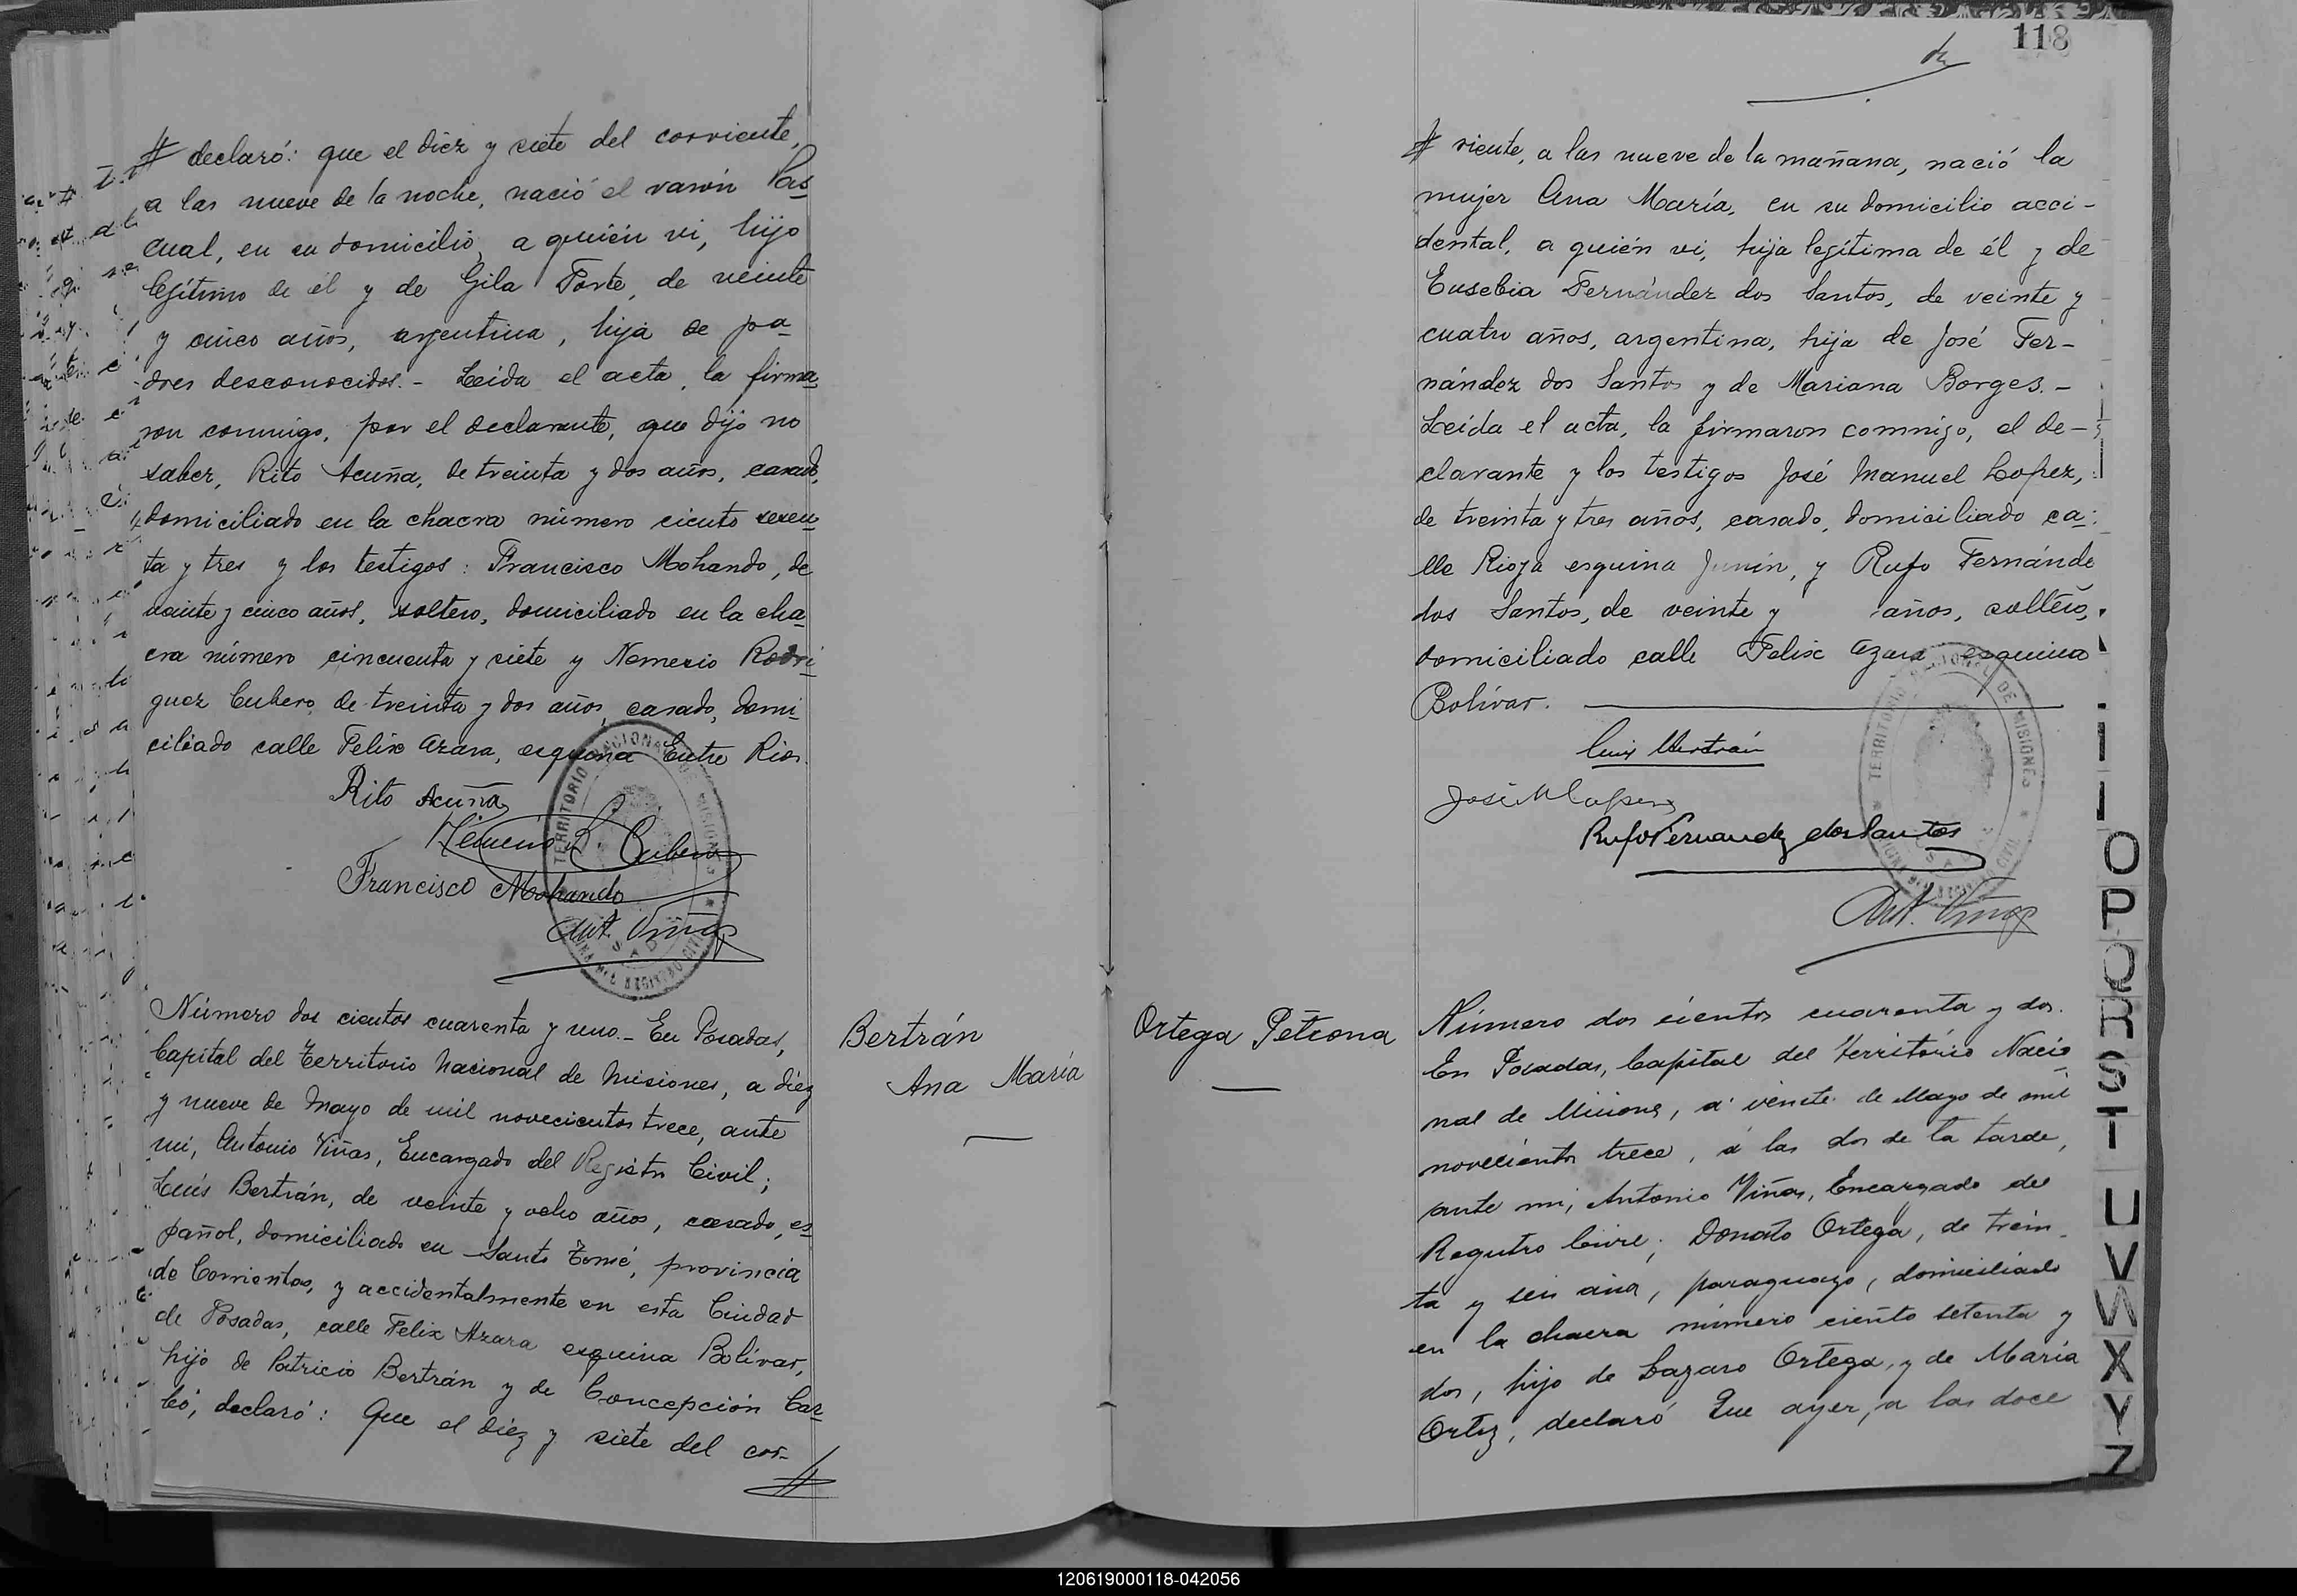 # declaró: que el diez y siete del corriente,
a las nueve de la noche, nació el varón Pas
cual, en su domicilio, a quién vi, hijo
legítimo de él y de Gila Forte, de veinte
y cinco años, argentina, hija de pa
dres desconocidos.- Leida el acta, la firma
ron conmigo, por el declarante, que dijo no
saber, Rito Acuña, de treinta y dos años, casado,
domiciliado en la chacra número ciento sesen
ta y tres y los testigos: Francisco Mohando, de
veinte y cinco años, soltero, domiciliado en la cha
cra número cincuenta y siete y Nemesio Rodri
guez Cubero, de treinta y dos años, casado, domi
ciliado calle Felix Azara, esquina Entre Rios.
Rito Acuña
Nemesio R. Cubero
Francisco Mohando
Ant. Viñas
TERRITORIO NACIONAL DE MISIONES
Número dos cientos cuarenta y uno.- En Posadas,
Capital del Territorio Nacional de Misiones, a diez
y nueve de Mayo de mil novecientos trece, ante
mi, Antonio Viñas, Encargado del Registro Civil;
Luis Bertrán, de veinte y ocho años, casado, es
pañol, domiciliado en Santo Tomé, provincia
de Corrientes, y accidentalmente en esta Ciudad
de Posadas, calle Felix Azara esquina Bolívar,
hijo de Patricio Bertrán y de Concepción Car
bó, declaró: Que el diez y siete del cor-
#
Bertrán
Ana María
118
# riente, a las nueve de la mañana, nació la
mujer Ana María, en su domicilio acci-
dental, a quién vi, hija legítima de él y de
Eusebia Fernández dos Santos, de veinte y
cuatro años, argentina, hija de José Fer-
nández dos Santos y de Mariana Borges.-
Leida el acta, la firmaron conmigo, el de-
clarante y los testigos José Manuel Lopez,
de treinta y tres años, casado, domiciliado ca
lle Rioja esquina Junín, y Rufo Fernánde
dos Santos, de veinte y años, soltero,
domiciliado calle Felix Azara esquina
Bolívar.
Luis Bertrán
José M Lopez
Rufo Fernandez dos Santos
Ant. Viñas
TERRITORIO NACIONAL DE MISIONES
Ortega Petrona
Número dos cientos cuarenta y dos.
En Posadas, Capital del Territorio Nacio
nal de Misiones, á veinte de Mayo de mil
novecientos trece, á las dos de la tarde,
ante mi, Antonio Viñas, Encargado del
Registro Civil; Donato Ortega, de trein
ta y seis años, paraguayo, domiciliado
en la chacra número ciento setenta y
dos, hijo de Lazaro Ortega, y de María
Ortiz, declaró Que ayer, a las doce
O
P
Q
R
S
T
U
V
W
X
Y
Z
120619000118-042056